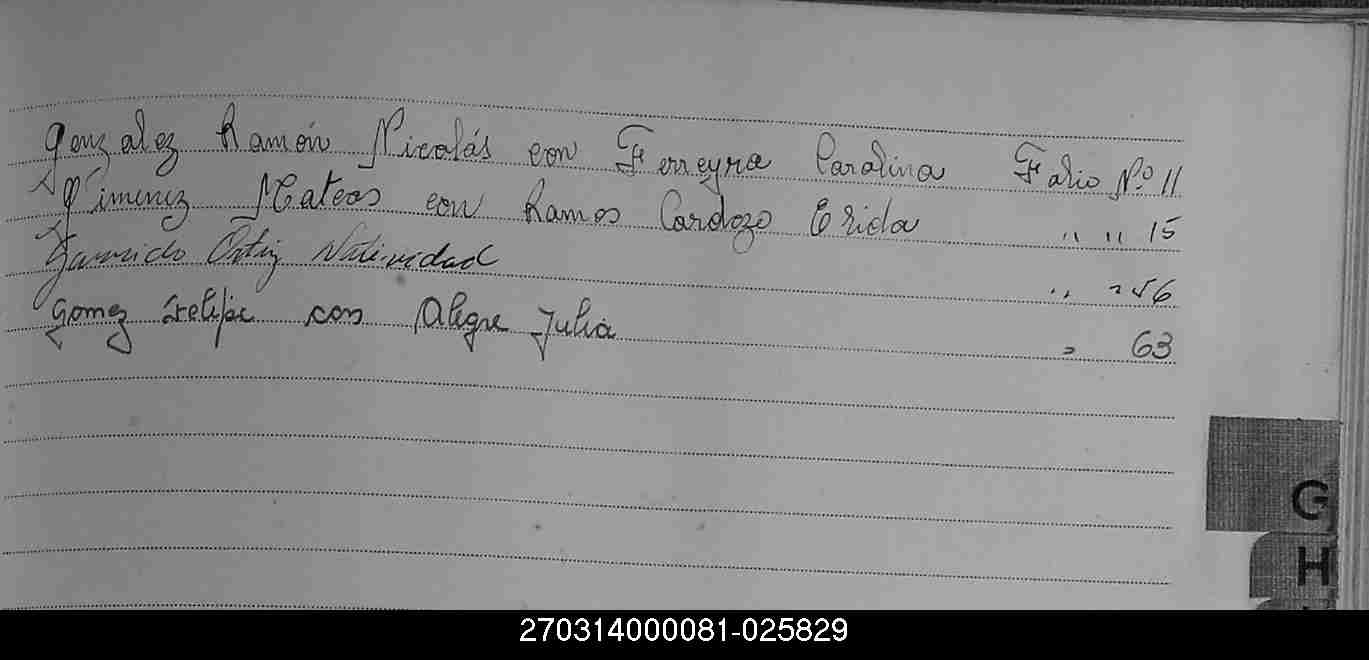 Gonzalez Ramón Nicolás con Ferreyra Carolina Folio Nº 11
Gimenez Mateos con Ramos Cardozo Elida " " 15
Garrido Ortiz Natividad " " 56
Gomez Felipe con Alegre Julia " 63
G
H
270314000081-025829